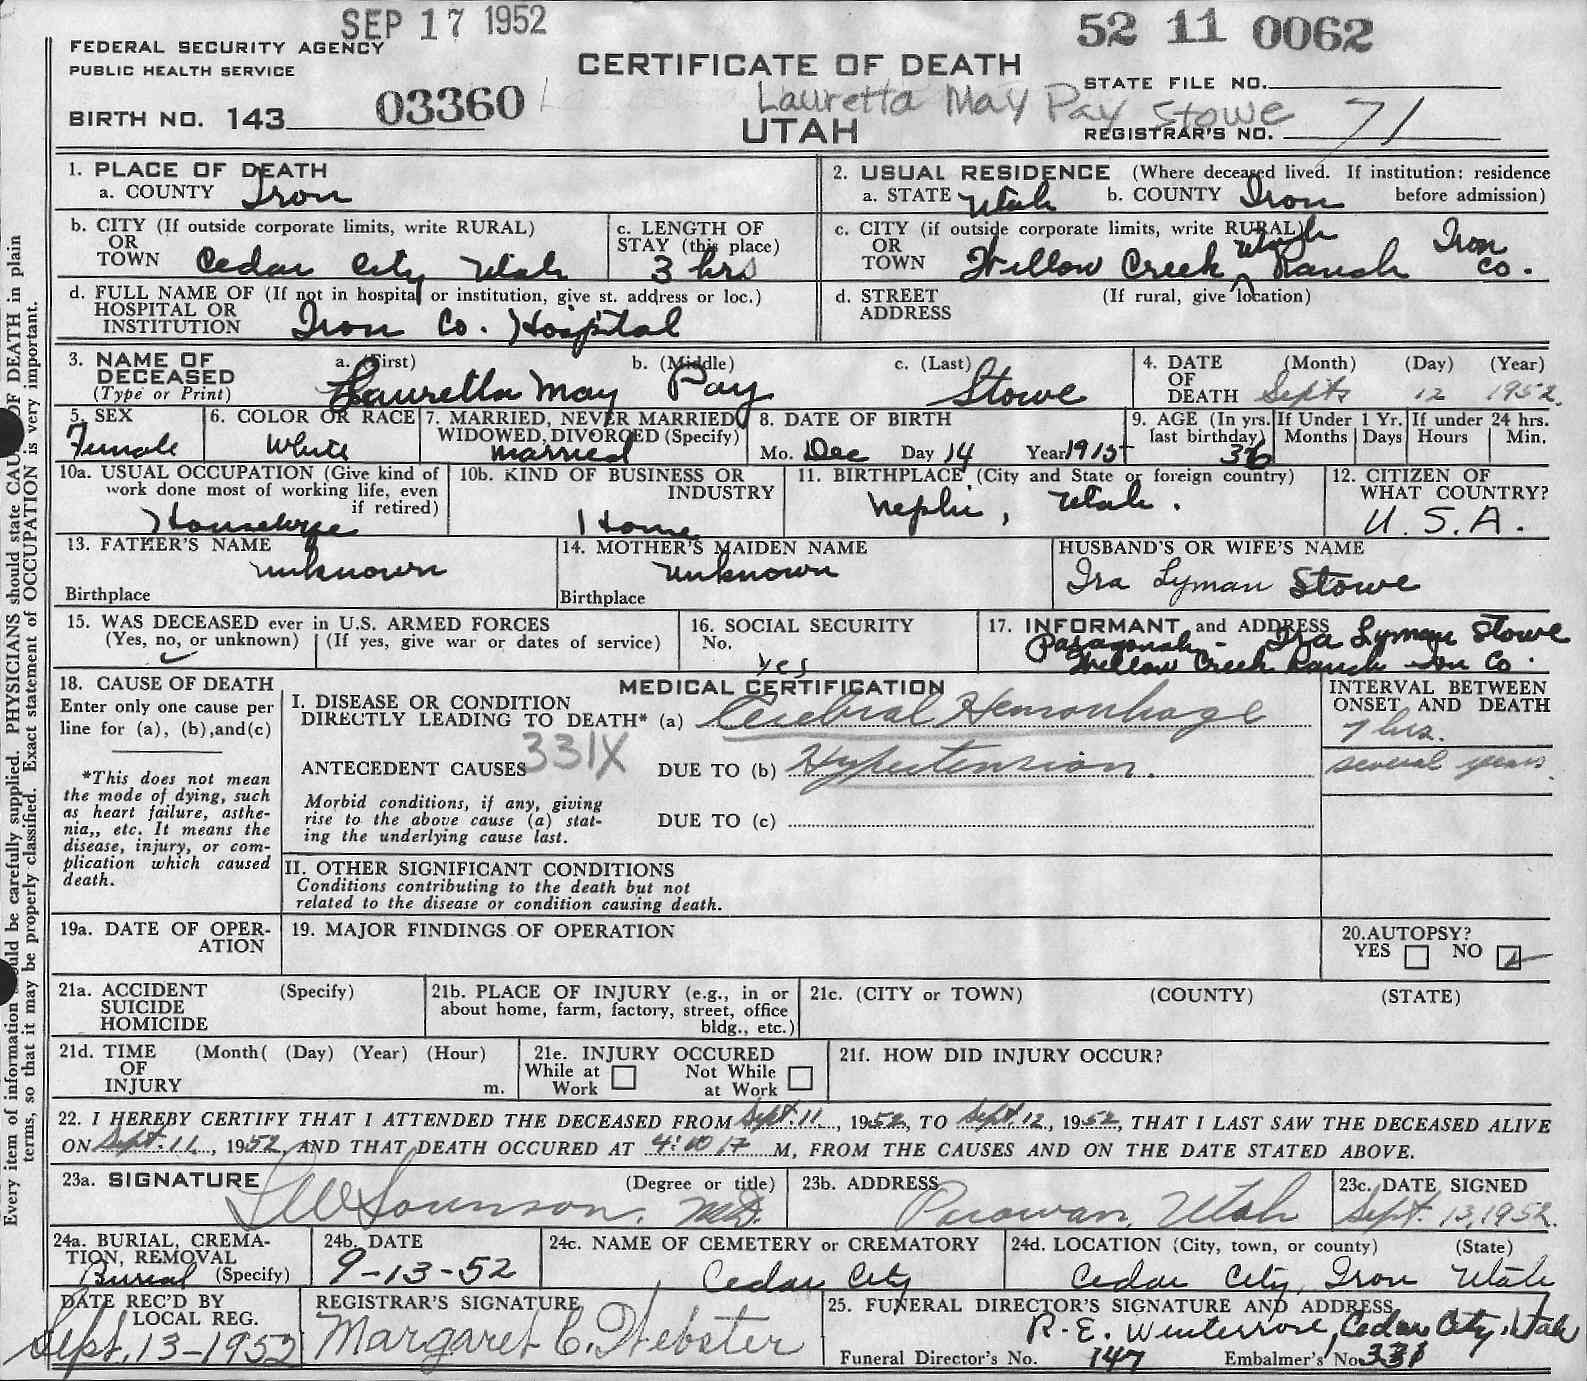 SEP 17 1952
52 11 0062
FEDERAL SECURITY AGENCY
PUBLIC HEALTH SERVICE
CERTIFICATE OF DEATH
STATE FILE NO.
BIRTH NO. 143 03360
Lauretta May Pay Stowe
UTAH
REGISTRAR'S NO. 71
1. PLACE OF DEATH
a. COUNTY Iron
2. USUAL RESIDENCE (Where deceased lived. If institution: residence before admission)
a. STATE Utah b. COUNTY Iron
b. CITY (If outside corporate limits, write RURAL)
OR
TOWN Cedar City Utah
c. LENGTH OF
STAY (this place)
3 hrs
c. CITY (if outside corporate limits, write RURAL)
OR
TOWN Willow Creek Ranch Iron Co.
d. FULL NAME OF (If not in hospital or institution, give st. address or loc.)
HOSPITAL OR
INSTITUTION Iron Co. Hospital
d. STREET (If rural, give location)
ADDRESS
3. NAME OF DECEASED (Type or Print)
a. (First) b. (Middle) c. (Last)
Lauretta May Pay Stowe
4. DATE OF DEATH (Month) (Day) (Year)
Sept 12 1952.
5. SEX
Female
6. COLOR OR RACE
White
7. MARRIED, NEVER MARRIED
WIDOWED, DIVORCED (Specify)
Married
8. DATE OF BIRTH
Mo. Dec Day 14 Year 1915
9. AGE (In yrs. last birthday) 36
If Under 1 Yr. Months Days
If under 24 hrs. Hours Min.
10a. USUAL OCCUPATION (Give kind of
work done most of working life, even
if retired)
10b. KIND OF BUSINESS OR
INDUSTRY
Home
11. BIRTHPLACE (City and State or foreign country)
Nephi, Utah.
12. CITIZEN OF
WHAT COUNTRY?
U.S.A.
13. FATHER'S NAME
unknown
Birthplace
14. MOTHER'S MAIDEN NAME
unknown
Birthplace
HUSBAND'S OR WIFE'S NAME
Ira Lyman Stowe
15. WAS DECEASED ever in U.S. ARMED FORCES
(Yes, no, or unknown) (If yes, give war or dates of service)
16. SOCIAL SECURITY
No.
yes
17. INFORMANT and ADDRESS
Paragonah - Ira Lyman Stowe
Willow Creek Ranch Iron Co.
18. CAUSE OF DEATH
Enter only one cause per
line for (a), (b), and (c)
*This does not mean
the mode of dying, such
as heart failure, asthe-
nia,, etc. It means the
disease, injury, or com-
plication which caused
death.
MEDICAL CERTIFICATION
I. DISEASE OR CONDITION
DIRECTLY LEADING TO DEATH* (a) Cerebral Hemorrhage
331X
ANTECEDENT CAUSES DUE TO (b) Hypertension.
Morbid conditions, if any, giving
rise to the above cause (a) stat-
ing the underlying cause last.
DUE TO (c)
INTERVAL BETWEEN
ONSET AND DEATH
7 hrs.
several years.
II. OTHER SIGNIFICANT CONDITIONS
Conditions contributing to the death but not
related to the disease or condition causing death.
19a. DATE OF OPER-
ATION
19. MAJOR FINDINGS OF OPERATION
20. AUTOPSY?
YES NO
21a. ACCIDENT (Specify)
SUICIDE
HOMICIDE
21b. PLACE OF INJURY (e.g., in or
about home, farm, factory, street, office
bldg., etc.)
21c. (CITY or TOWN) (COUNTY) (STATE)
21d. TIME (Month( (Day) (Year) (Hour)
OF
INJURY m.
21e. INJURY OCCURED
While at Work Not While at Work
21f. HOW DID INJURY OCCUR?
22. I HEREBY CERTIFY THAT I ATTENDED THE DECEASED FROM Sept. 11, 1952, TO Sept. 12, 1952, THAT I LAST SAW THE DECEASED ALIVE
ON Sept. 11, 1952, AND THAT DEATH OCCURED AT 4:10 M, FROM THE CAUSES AND ON THE DATE STATED ABOVE.
23a. SIGNATURE (Degree or title)
M.D.
23b. ADDRESS
Parowan, Utah
23c. DATE SIGNED
Sept. 13, 1952.
24a. BURIAL, CREMA-
TION, REMOVAL
Burial (Specify)
24b. DATE
9-13-52
24c. NAME OF CEMETERY or CREMATORY
Cedar City
24d. LOCATION (City, town, or county) (State)
Cedar City, Iron Utah
DATE REC'D BY
LOCAL REG.
Sept. 13-1952
REGISTRAR'S SIGNATURE
Margaret C. Webster
25. FUNERAL DIRECTOR'S SIGNATURE AND ADDRESS
R.E. Winterrose, Cedar City, Utah
Funeral Director's No. 147 Embalmer's No. 331
terms, so that it may be properly classified. Exact statement of OCCUPATION is very important.